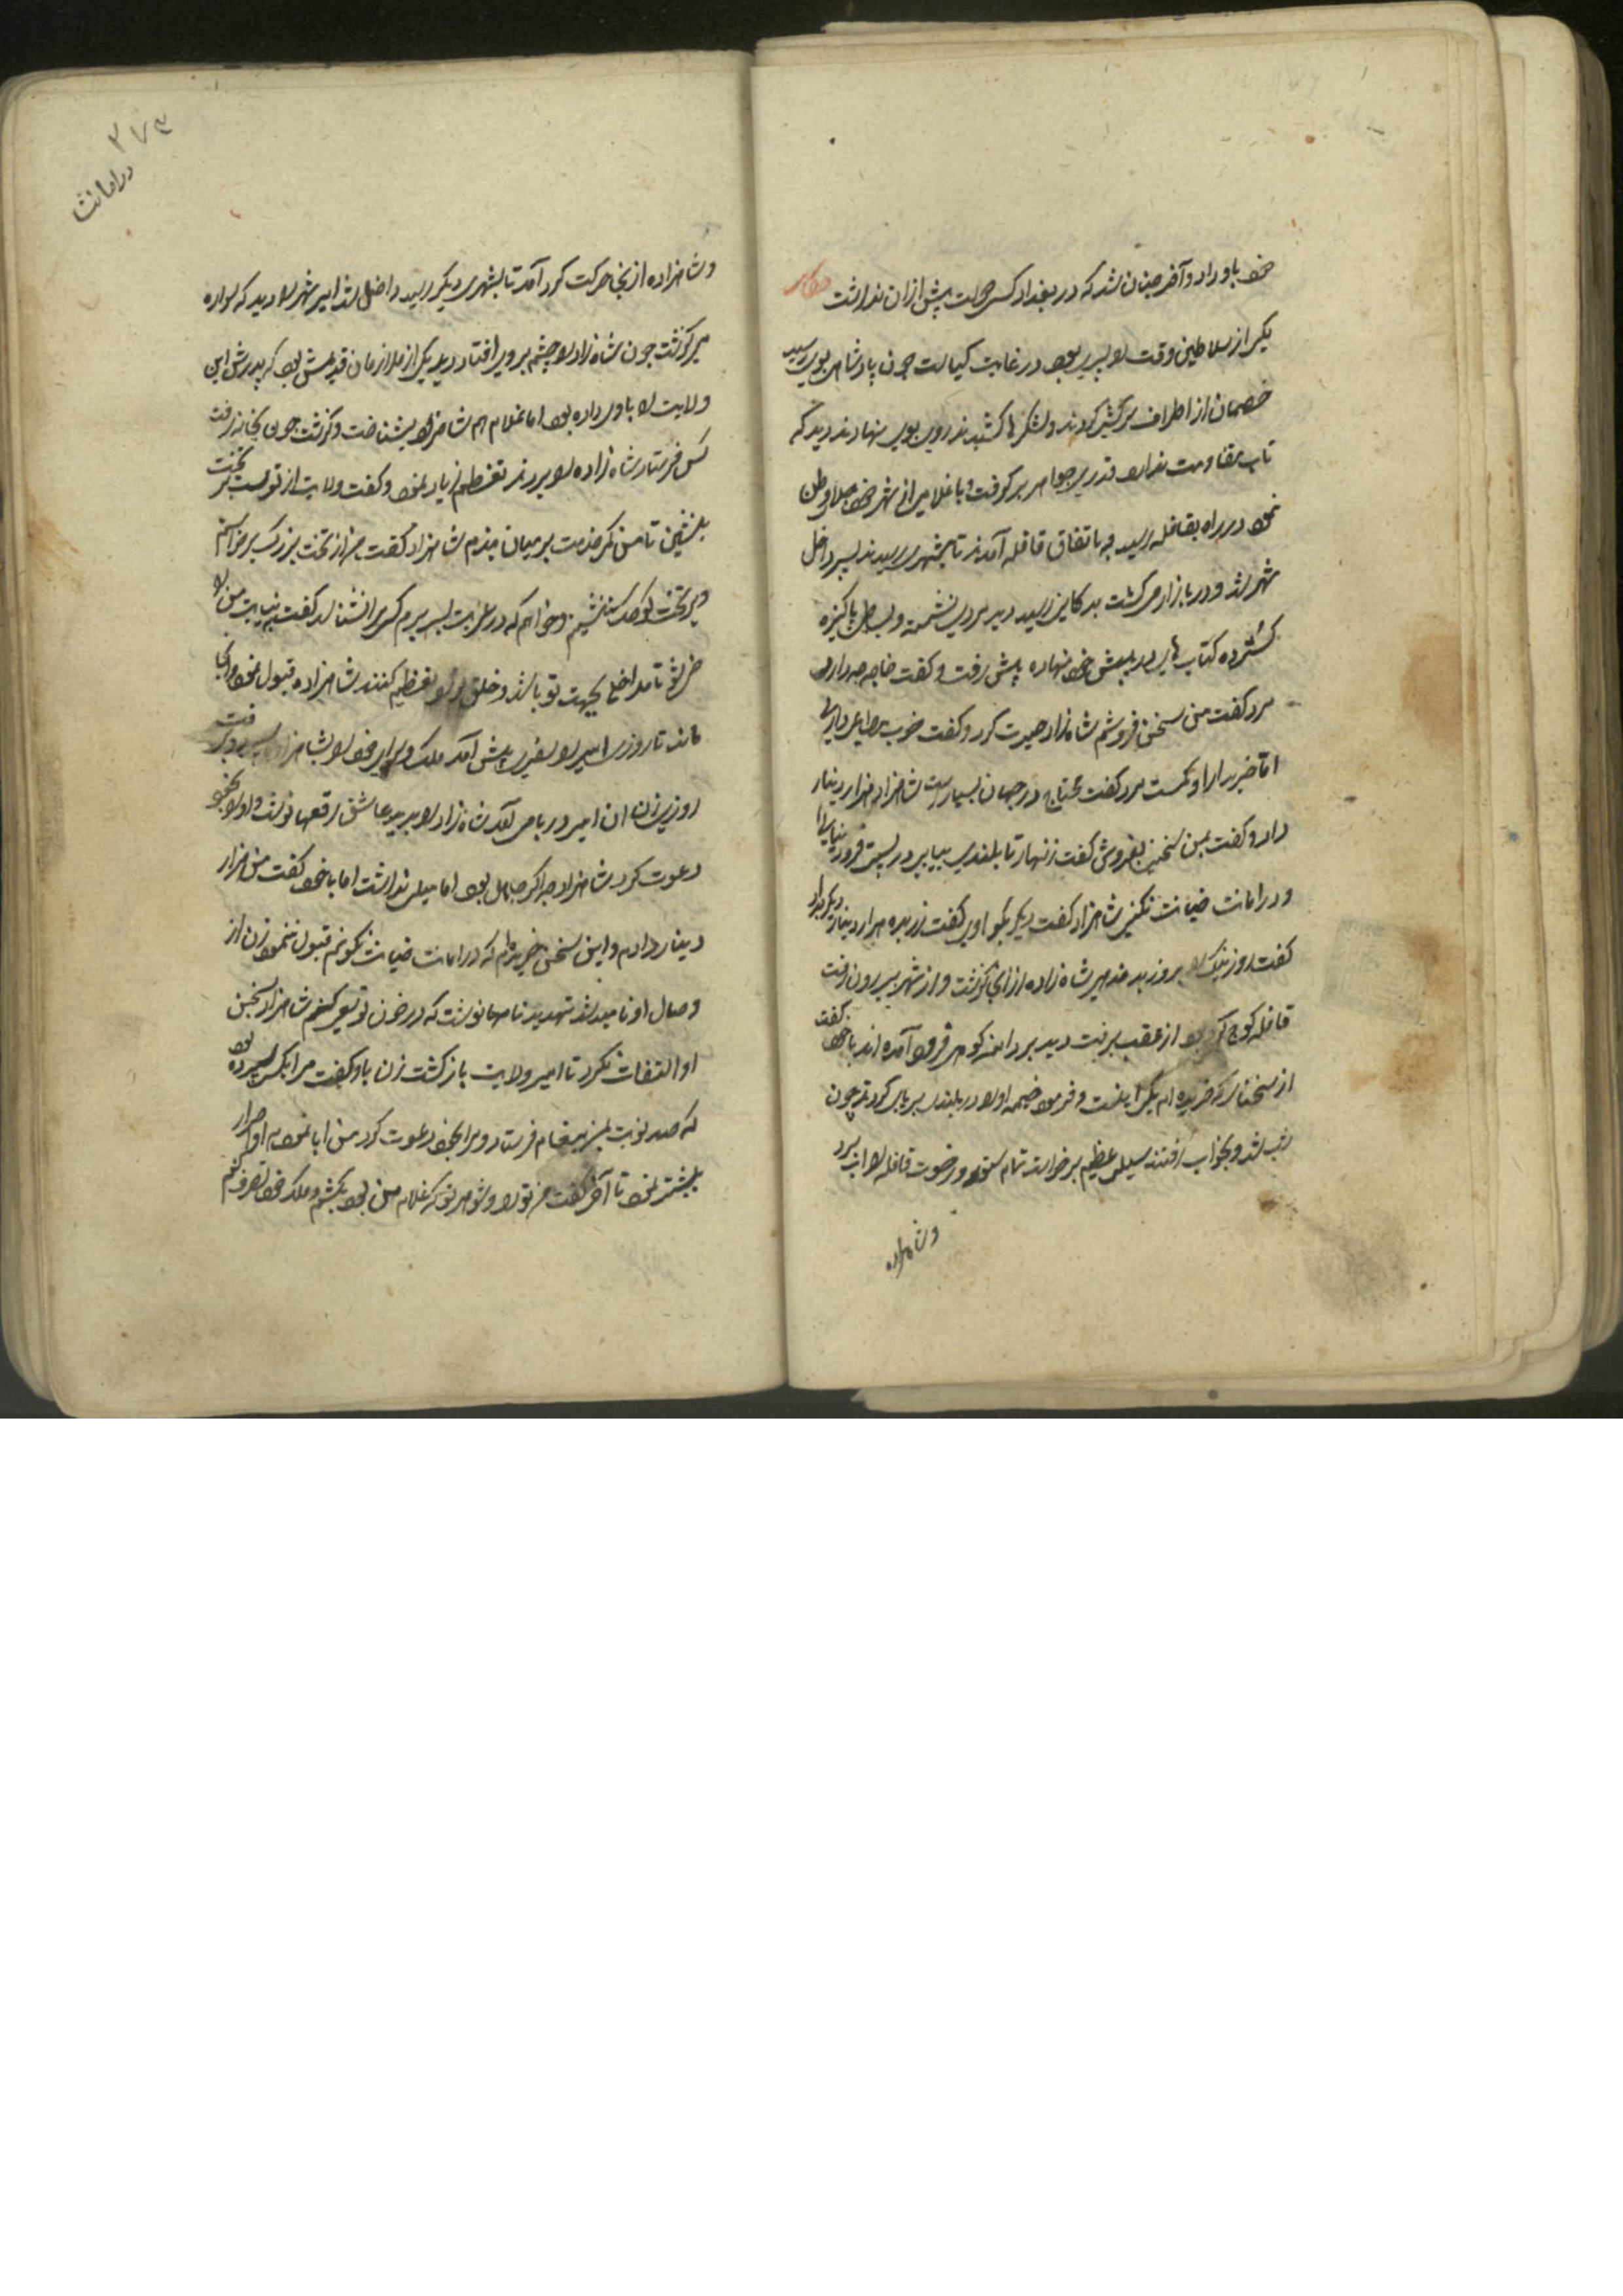 خود باو داد و آخر چنان شد که در بغداد کسی حالت پیش ازان نداشت حکایت
یکی از سلاطین وقت را پسری بود در غایت کیاست چون پادشاهی بوی رسید
خصمان از اطراف سرکشی کردند و لشکرها کشیدند روی بوی نهادند دید که
تاب مقاومت ندارد قدری جواهر برگرفت و با غلامی از شهر خود جلاء وطن
نمود در راه بقافله رسید باتفاق قافله آمدند تا بشهری رسیدند پسر داخل
شهر شد و در بازار می گشت بدکانی رسید دید مردی نشسته و بساطی پاکیزه
گسترده کتاب های در پیش خود نهاده پیش رفت و گفت خواجه چه داری
مرد گفت من سخن فروشم شاهزاد حیرت کرد و گفت خوب متاعی داری
اما خریدار او کمست مرد گفت محتاج در جهان بسیارست شاهزاد هزار دینار
داد و گفت بمن سخنی بفروش گفت زنهار تا بلندی بیابی در پستی فرو نیایی
و در امانت خیانت نکنی شاهزاد گفت دیگر بگو اوی گفت زر بده هزار دینار دیگر بداد
گفت روز نیک را بروز بد مده شاه زاده ازان گذشت و از شهر بیرون رفت
قافله کوچ کرده بود از عقب برفت دید بر دامنه کوهی فرود آمده اند با خود گفت
از سخنانی که خریده ام یکی اینست و فرمود خیمه او را در بلندی برپای کردند چون
شب شد و بخواب رفتند سیلی عظیم برخواست تمام ستور و رخوت قافله را آب برد
وشاهزاده
۲۷۴
در امانت
وشاهزاده ازنجا حرکت کرد آمد تا بشهری دیگر رسید داخل شد امیر شهر را دید که سواره
می گذشت چون شاه زاد را چشم بر وی افتاد دید یکی از ملازمان قدیمش بود که پدرش این
ولایت را باو داده بود اما غلام هم شاهزاد را بشناخت و گذشت چون بخانه رفت
کس فرستاد شاه زاده را بردند تعظیم زیاد نمود و گفت ولایت از توست بر تخت
بنشین تا من کمر خدمت بر میان بندم شاهزاد گفت من از تخت بزرگ برخواستم
و بر تخت کوچک ننشینم و خواهم که در غربت بسر برم کس مرا نشناسد گفت بنیابت من را
ضی شو تا مداخلی بجهت تو باشد و خلق ترا تعظیم کنند شاهزاده قبول نمود و آنجا
ماند تا روزی امیر را سفری پیش آمد ملک و سرای خود را بشاهزاد سپرد و برفت
روزی زن ان امیر در بام آمد شاه زاد را بدید عاشق شد رقعها نوشت و او را بخود
دعوت کرد شاهزاد چرا که جاهل بود اما میلی نداشت اما با خود گفت من هزار
دینار دادم و این سخن خریده ام که در امانت خیانت نکنم قبول ننمود زن از
وصال او ناامید شد تهدید نامها نوشت که در خون تو سعی کنم شاهزاد بسخن
او التفات نکرد تا امیر ولایت باز گشت زن باو گفت مرا بکسی سپرده بود
که صد نوبت بمن پیغام فرستاد و مرا بخود دعوت کرد من ابا نمودم او اصرار
بیشتر نمود تا آخر گفت من تو را و شوهر تو که غلام من بود بکشم و ملک خود تصرف کنم